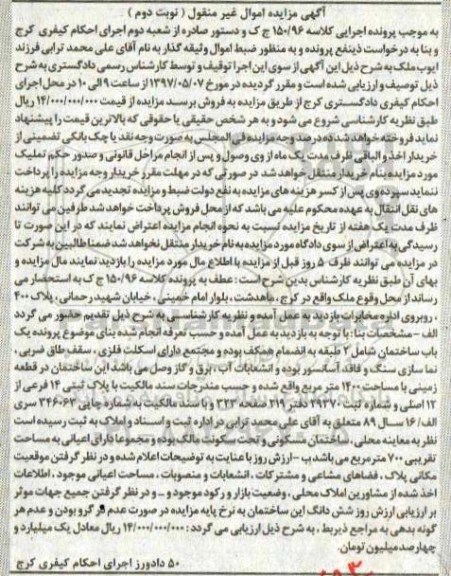 آگهی مزایده اموال غیر منقول ( نوبت دوم )
به موجب پرونده اجرایی کلاسه ۱۵۰/۹۶ ج ک و دستور صادره از شعبه دوم اجرای احکام کیفری کرج
و بنا به درخواست ذینفع پرونده و به منظور ضبط اموال وثیقه گذار به نام آقای علی محمد ترابی فرزند
ایوب ملک به شرح ذیل این آگهی از سوی این اجرا توقیف و توسط کارشناس رسمی دادگستری به شرح
ذیل توصیف و ارزیابی شده است و مقرر گردیده در مورخ ۱۳۹۷/۰۵/۰۷ از ساعت ۹ الی ۱۰ در محل اجرای
احکام کیفری دادگستری کرج از طریق مزایده به فروش برسد مزایده از قیمت ۱۴/۰۰۰/۰۰۰/۰۰۰ ریال
طبق نظریه کارشناسی شروع می شود و به هر شخص حقیقی یا حقوقی که بالاترین قیمت را پیشنهاد
نماید فروخته خواهد شد ده درصد وجه مزایده فی المجلس به صورت وجه نقد یا چک بانکی تضمینی از
خریدار اخذ و الباقی ظرف مدت یک ماه از وی وصول و پس از انجام مراحل قانونی و صدور حکم تملیک
مورد مزایده بنام خریدار منتقل خواهد شد در صورتی که در مهلت مقرر خریدار وجه مزایده را پرداخت
ننماید سپرده وی پس از کسر هزینه های مزایده به نفع دولت ضبط و مزایده تجدید می گردد کلیه هزینه
های نقل انتقال به عهده محکوم علیه می باشد که از محل فروش پرداخت خواهد شد طرفین می توانند
ظرف مدت یک هفته از تاریخ مزایده نسبت به نحوه انجام مزایده اعتراض نمایند که در این صورت تا
رسیدگی به اعتراض از سوی دادگاه مورد مزایده به نام خریدار منتقل نخواهد شد ضمنا طالبین به شرکت
در مزایده می توانند ظرف ۵ روز قبل از مزایده با اطلاع مال مورد مزایده را بازدید نمایند مال مزایده و
بهای آن طبق نظریه کارشناس بدین شرح است : عطف به پرونده کلاسه ۱۵۰/۹۶ ج ک به استحضار می
رساند از محل وقوع ملک واقع در کرج، ماهدشت ، بلوار امام خمینی ، خیابان شهید رحمانی ، پلاک ۴۰۰
، روبروی اداره مخابرات بازدید به عمل آمده و نظریه کارشناسی به شرح ذیل تقدیم حضور می گردد
الف – مشخصات بنا : با توجه به بازدید به عمل آمده و حسب تعرفه انجام شده بنای موضوع پرونده یک
باب ساختمان شامل ۲ طبقه به انضمام همکف بوده و مجتمع دارای اسکلت فلزی ، سقف طاق ضربی ،
نما سازی سنگ و فاقد آسانسور بوده و انشعابات آب ، برق و گاز وصل می باشد این ساختمان در قطعه
زمینی با مساحت ۱۴۰۰ متر مربع واقع شده و حسب مندرجات سند مالکیت با پلاک ثبتی ۱۴ فرعی از
۱۲ اصلی و شماره ثبت ۲۹۳۷۰ دفتر ۲۱۹ صفحه ۳۳۳ و با سند مالکیت به شماره چاپی ۳۴۶۰۶۲ سری
الف/ ۱۶ سال ۸۹ متعلق به آقای علی محمد ترابی در اداره ثبت و اسناد و املاک به ثبت رسیده است
نظر به معاینه محلی ، ساختمان مسکونی و تحت سکونت مالک بوده و مجموعا دارای اعیانی به مساحت
تقریبی ۷۰۰ متر مربع می باشد ب – ارزش روز با عنایت به توضیحات اعلام شده و در نظر گرفتن موقعیت
مکانی پلاک ، فضاهای مشاعی و مشترکات ، انشعابات و منصوبات ، مساحت اعیانی موجود ، اطلاعات
اخذ شده از مشاورین املاک محلی ، وضعیت بازار و رکود موجود و ... و در نظر گرفتن جمیع جهات موثر
بر ارزیابی ارزش روز شش دانگ این ساختمان به نرخ پایه مزایده در صورت عدم در گرو بودن و عدم هر
گونه بدهی به مراجع ذیربط ، به شرح ذیل ارزیابی می گردد : ۱۴/۰۰۰/۰۰۰/۰۰۰ ریال معادل یک میلیارد و
چهارصد میلیون تومان.
۵۰ دادورز اجرای احکام کیفری کرج